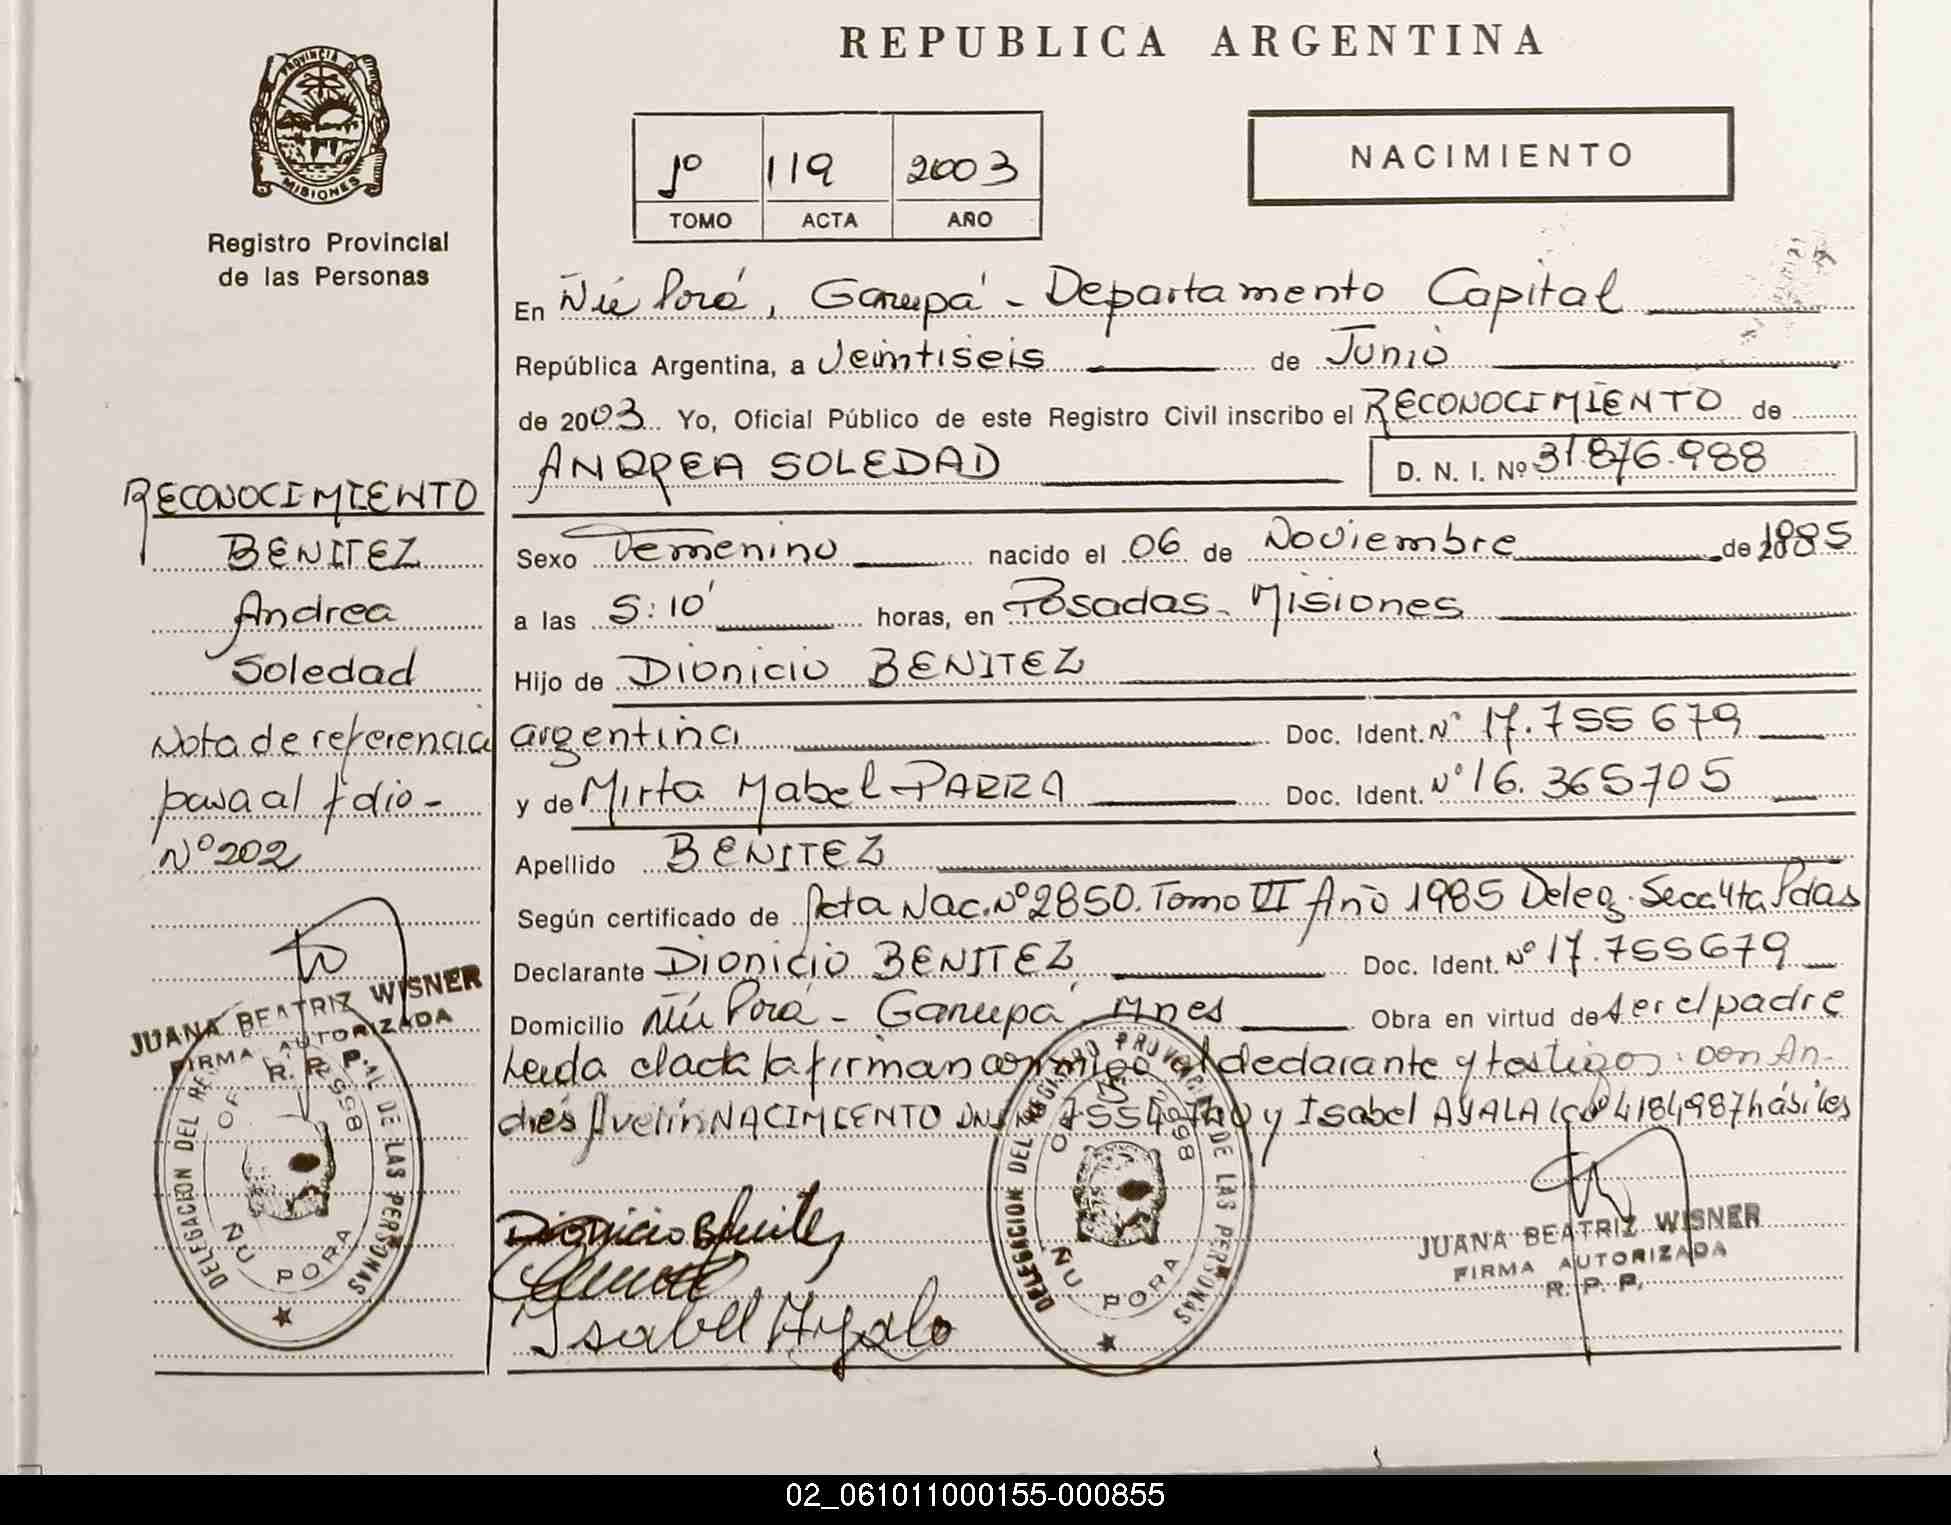 REPUBLICA ARGENTINA
PROVINCIA DE
MISIONES
Registro Provincial
de las Personas
1º 119 2003
TOMO ACTA AÑO
NACIMIENTO
En Ñú Porá, Garupá - Departamento Capital
República Argentina, a Veintiseis de Junio
de 2003 Yo, Oficial Público de este Registro Civil inscribo el RECONOCIMIENTO de
ANDREA SOLEDAD D. N. I. Nº 31.876.988
Sexo Femenino nacido el 06 de Noviembre de 1985
a las 5:10' horas, en Posadas - Misiones
Hijo de Dionicio BENITEZ
argentina Doc. Ident. Nº 17.755679
y de Mirta Mabel PARRA Doc. Ident. Nº 16.365705
Apellido BENITEZ
Según certificado de Acta Nac. Nº 2850. Tomo VI Año 1985 Deleg. Secc 4ta Pdas
Declarante Dionicio BENITEZ Doc. Ident. Nº 17.755679
Domicilio Ñú Porá - Garupá Mnes Obra en virtud de ser el padre
Leida el acta la firman conmigo el declarante y testigos: don An-
drés Avelin NACIMIENTO y Isabel AYALA 4184987 hábiles
RECONOCIMIENTO
BENITEZ
Andrea
Soledad
Nota de referencia
pasa al folio -
Nº 202
JUANA BEATRIZ WISNER
FIRMA AUTORIZADA
R. P. P.
DELEGACION DEL REGISTRO PROVINCIAL DE LAS PERSONAS
ÑU PORA
Dionicio Benitez
Isabel Ayala
DELEGACION DEL REGISTRO PROVINCIAL DE LAS PERSONAS
ÑU PORA
JUANA BEATRIZ WISNER
FIRMA AUTORIZADA
R. P. P.
02_061011000155-000855